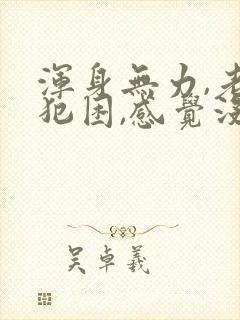 渾身無力,老
犯困,感覺沒
吴卓羲